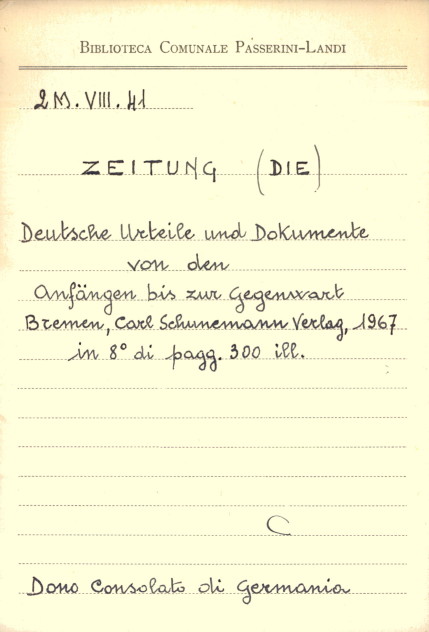 BIBLIOTECA COMUNALE PASSERINI-LANDI
2M.VIII.41
ZEITUNG (DIE)
Deutsche Urteile und Dokumente
von den
Anfängen bis zur Gegenwart
Bremen, Carl Schunemann Verlag, 1967
in 8° di pagg. 300 ill.
C
Dono Consolato di Germania